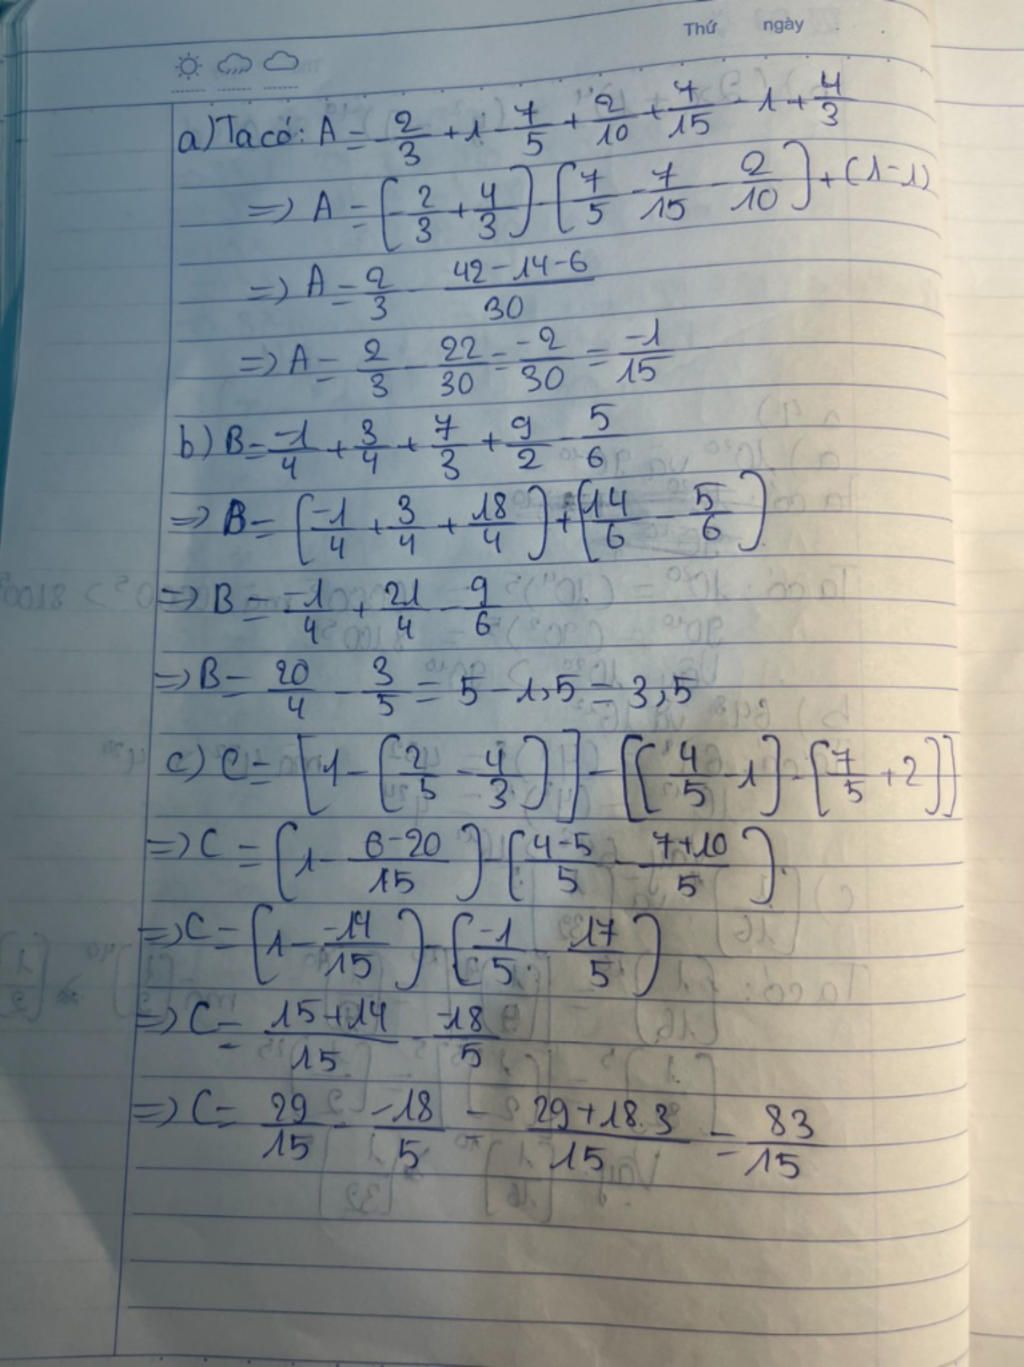 Thứ ngày
a) Ta có: A = -2/3 + 1 - 7/5 + 2/10 + 7/15 - 1 + 4/3
=> A = (-2/3 + 4/3) - (7/5 - 7/15 - 2/10) + (1-1)
=> A = 2/3 - (42-14-6)/30
=> A = 2/3 - 22/30 = -2/30 = -1/15
b) B = -1/4 + 3/4 + 7/3 + 9/2 - 5/6
=> B = (-1/4 + 3/4 + 18/4) + (14/6 - 5/6)
=> B = -1/4 + 21/4 - 9/6
=> B = 20/4 - 3/5 = 5 - 1,5 = 3,5
c) C = [1 - (2/5 - 4/3)] - [(4/5 - 1) - (7/5 + 2)]
=> C = (1 - (6-20)/15) - ((4-5)/5 - (7+10)/5)
=> C = (1 - -14/15) - (-1/5 - 17/5)
=> C = (15+14)/15 - -18/5
=> C = 29/15 - -18/5 = (29+18.3)/15 = 83/15